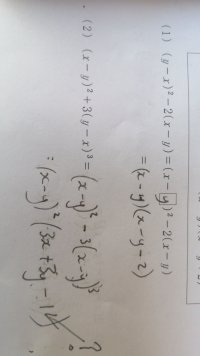 (1) (y−x)²−2(x−y)=(x−y)²−2(x−y)
=(x−y)(x−y−2)
(2) (x−y)²+3(y−x)³=(x−y)²−3(x−y)³
:(x−y)²(3x+3y−1)
?